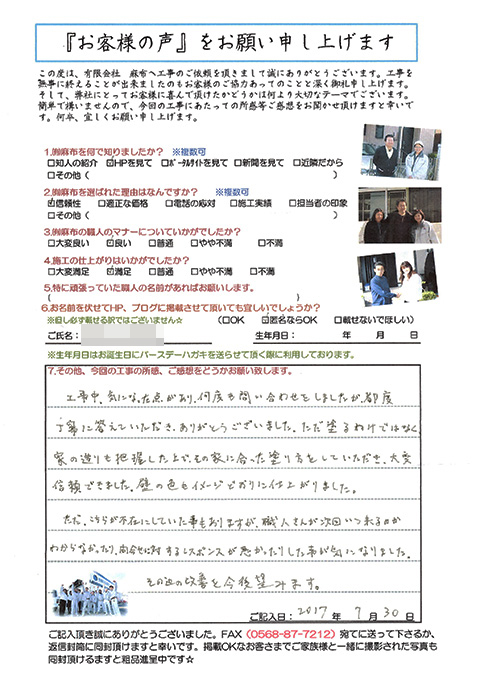 『お客様の声』をお願い申し上げます
この度は、有限会社 麻布へ工事のご依頼を頂きまして誠にありがとうございます。工事を
無事に終えることが出来ましたのもお客様のご協力あってのことと深く御礼申し上げます。
そして、弊社にとってお客様に喜んで頂けたかどうかは何より大切なテーマでございます。
簡単で構いませんので、今回の工事にあたっての所感等ご感想をお聞かせ頂けますと幸いで
す。何卒、宜しくお願い申し上げます。
1.㈲麻布を何で知りましたか? ※複数可
□知人の紹介 ☑HPを見て □ポータルサイトを見て □新聞を見て □近隣だから
□その他( )
2.㈲麻布を選ばれた理由はなんですか? ※複数可
☑信頼性 □適正な価格 □電話の応対 □施工実績 □担当者の印象
□その他( )
3.㈲麻布の職人のマナーについていかがでしたか?
□大変良い ☑良い □普通 □やや不満 □不満
4.施工の仕上がりはいかがでしたか?
□大変満足 ☑満足 □普通 □やや不満 □不満
5.特に頑張っていた職人の名前があればお願いします。
( )
6.お名前を伏せてHP、ブログに掲載させて頂いても宜しいでしょうか?
※但し必ず載せる訳ではございません☆ (□OK ☑匿名ならOK □載せないでほしい)
ご氏名: 生年月日: 年 月 日
※生年月日はお誕生日にバースデーハガキを送らせて頂く際に利用しております。
7.その他、今回の工事の所感、ご感想をどうかお願い致します。
工事中、気になった点があり、何度も問い合わせをしましたが、都度
丁寧に答えていただき、ありがとうございました。ただ塗るわけではなく
家の造りも把握した上で、その家に合った塗り方をしていただき、大変
信頼できました。壁の色もイメージどおりに仕上がりました。
ただ、こちらが不在にしていた事もありますが、職人さんが次回いつ来るのか
わからなかったり、問合せに対するレスポンスが悪かったりした事が気になりました。
その辺の改善を今後望みます。
ご記入日: 2017 年 7 月 30 日
ご記入頂き誠にありがとうございました。FAX(0568-87-7212)宛てに送って下さるか、
返信封筒に同封頂けますと幸いです。掲載OKなお客さまでご家族様と一緒に撮影された写真も
同封頂けるますと粗品進呈中です☆